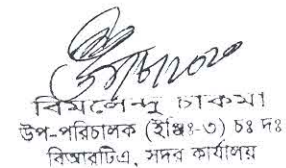 বিমলেন্দু চাকমা
উপ-পরিচালক (ইঞ্জিঃ-৩) চঃ দঃ
বিআরটিএ, সদর কার্যালয়